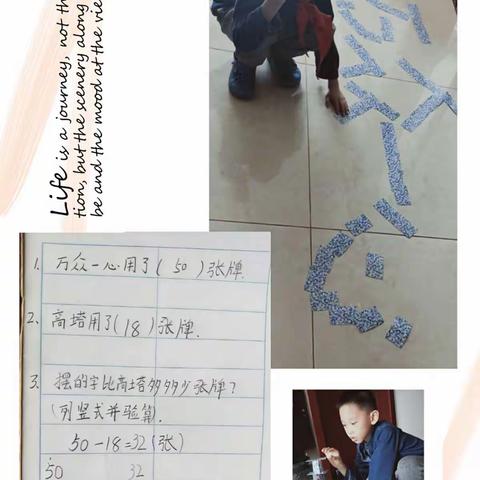 Life is a journey, not th
tion, but the scenery along
be and the mood at the vie
1. 万众一心用了( 50 )张牌.
2. 高塔用了(18)张牌.
3. 摆的字比高塔多多少张牌?
(列竖式并验算).
50-18=32(张)
50 32